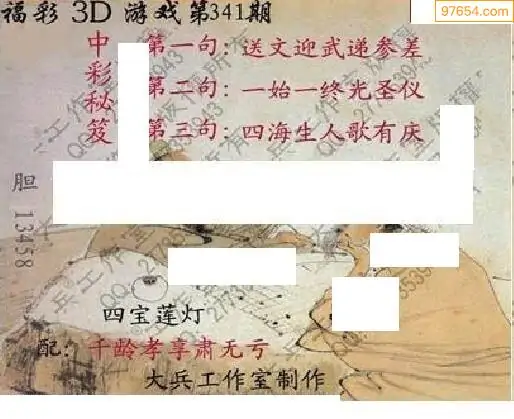 福彩 3D 游戏第341期
97654.com
中彩秘笈
第一句: 送文迎武递参差
第二句: 一始一终光圣仪
第三句: 四海生人歌有庆
胆 13458
四宝莲灯
配: 千龄孝享肃无亏
大兵工作室制作